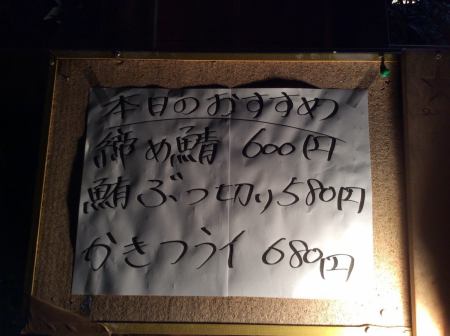 本日のおすすめ
締め鯖 600円
鮪ぶつ切り580円
かきフライ 680円